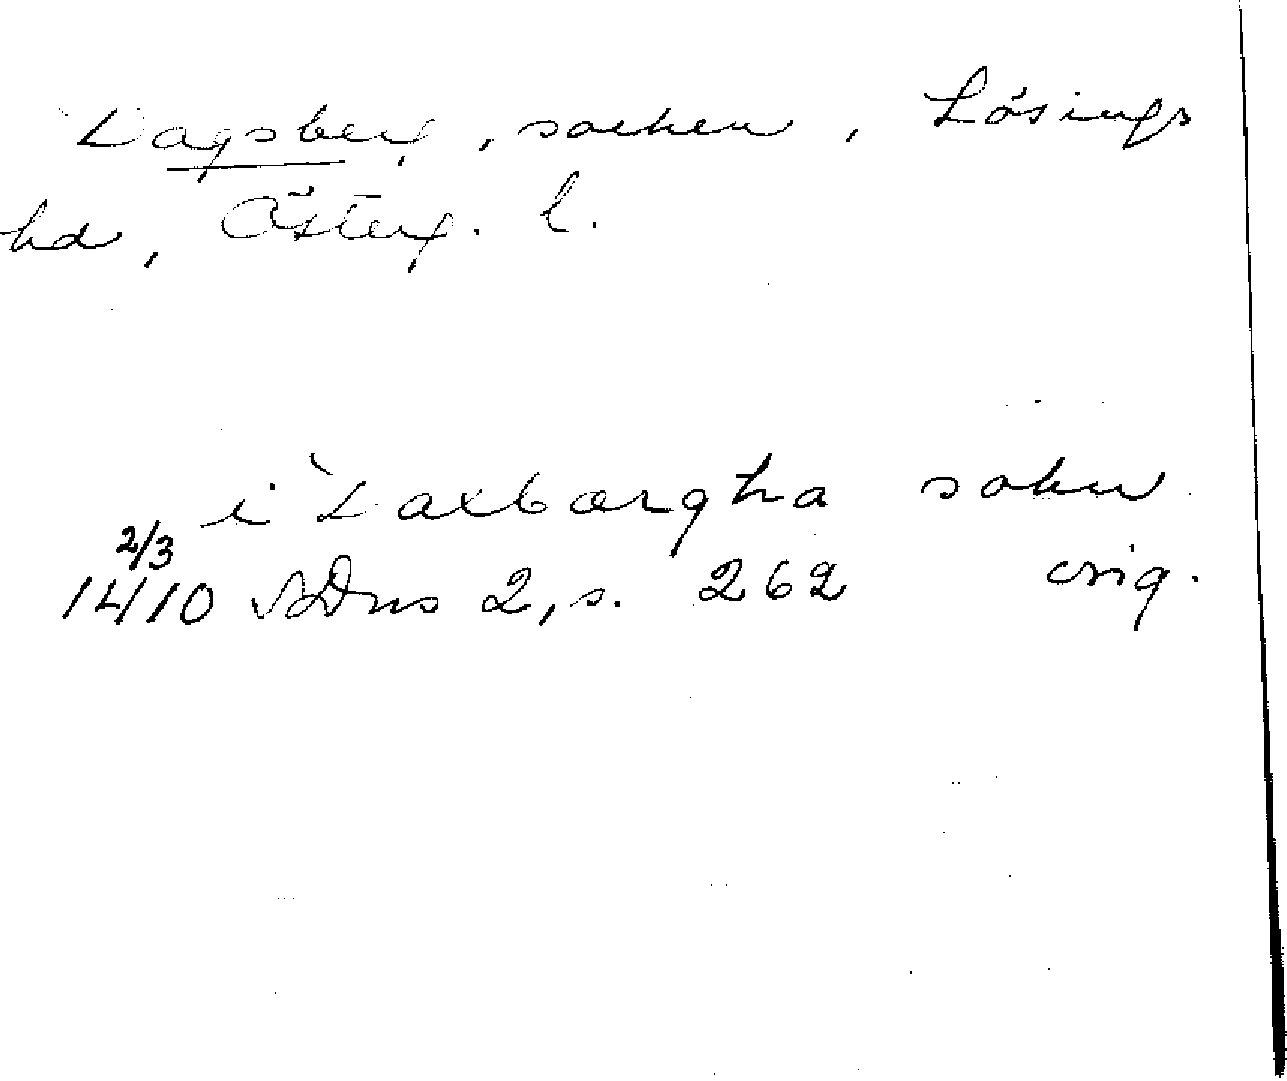 Dagsberg, socken, Lösings
hd, Österg. l.
i Daxbærgha sokn
2/3
1410 SDns 2, s. 262 orig.